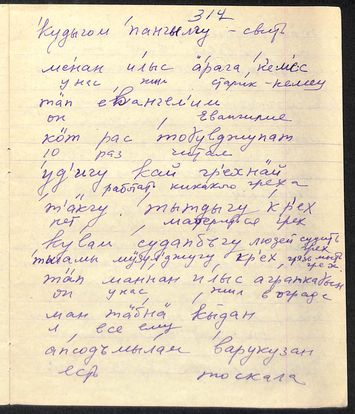 314
кудыгол пангылгу - свить
ме́нан и́лыс а́рага кемес
у нас жил старик-кемец
тап ева́нгел'им
он Евангилие
кӧт рас тобулджупат
10 раз читал
у́д'игу кай грехнӓй
работат какого греха
т'а́кгу. ты́тдыгу крех
нет, материться грех
кула́м суда́пбыгу людей судить грех
ты́мам му́зулджугу крех, грязь мыть грех.
тап маннан и́лыс аграткабын
он у нас жил в ограде
ман та́бнӓ кыдан
я все ему
а́псодъмы́лам варукузан
есть тоскала